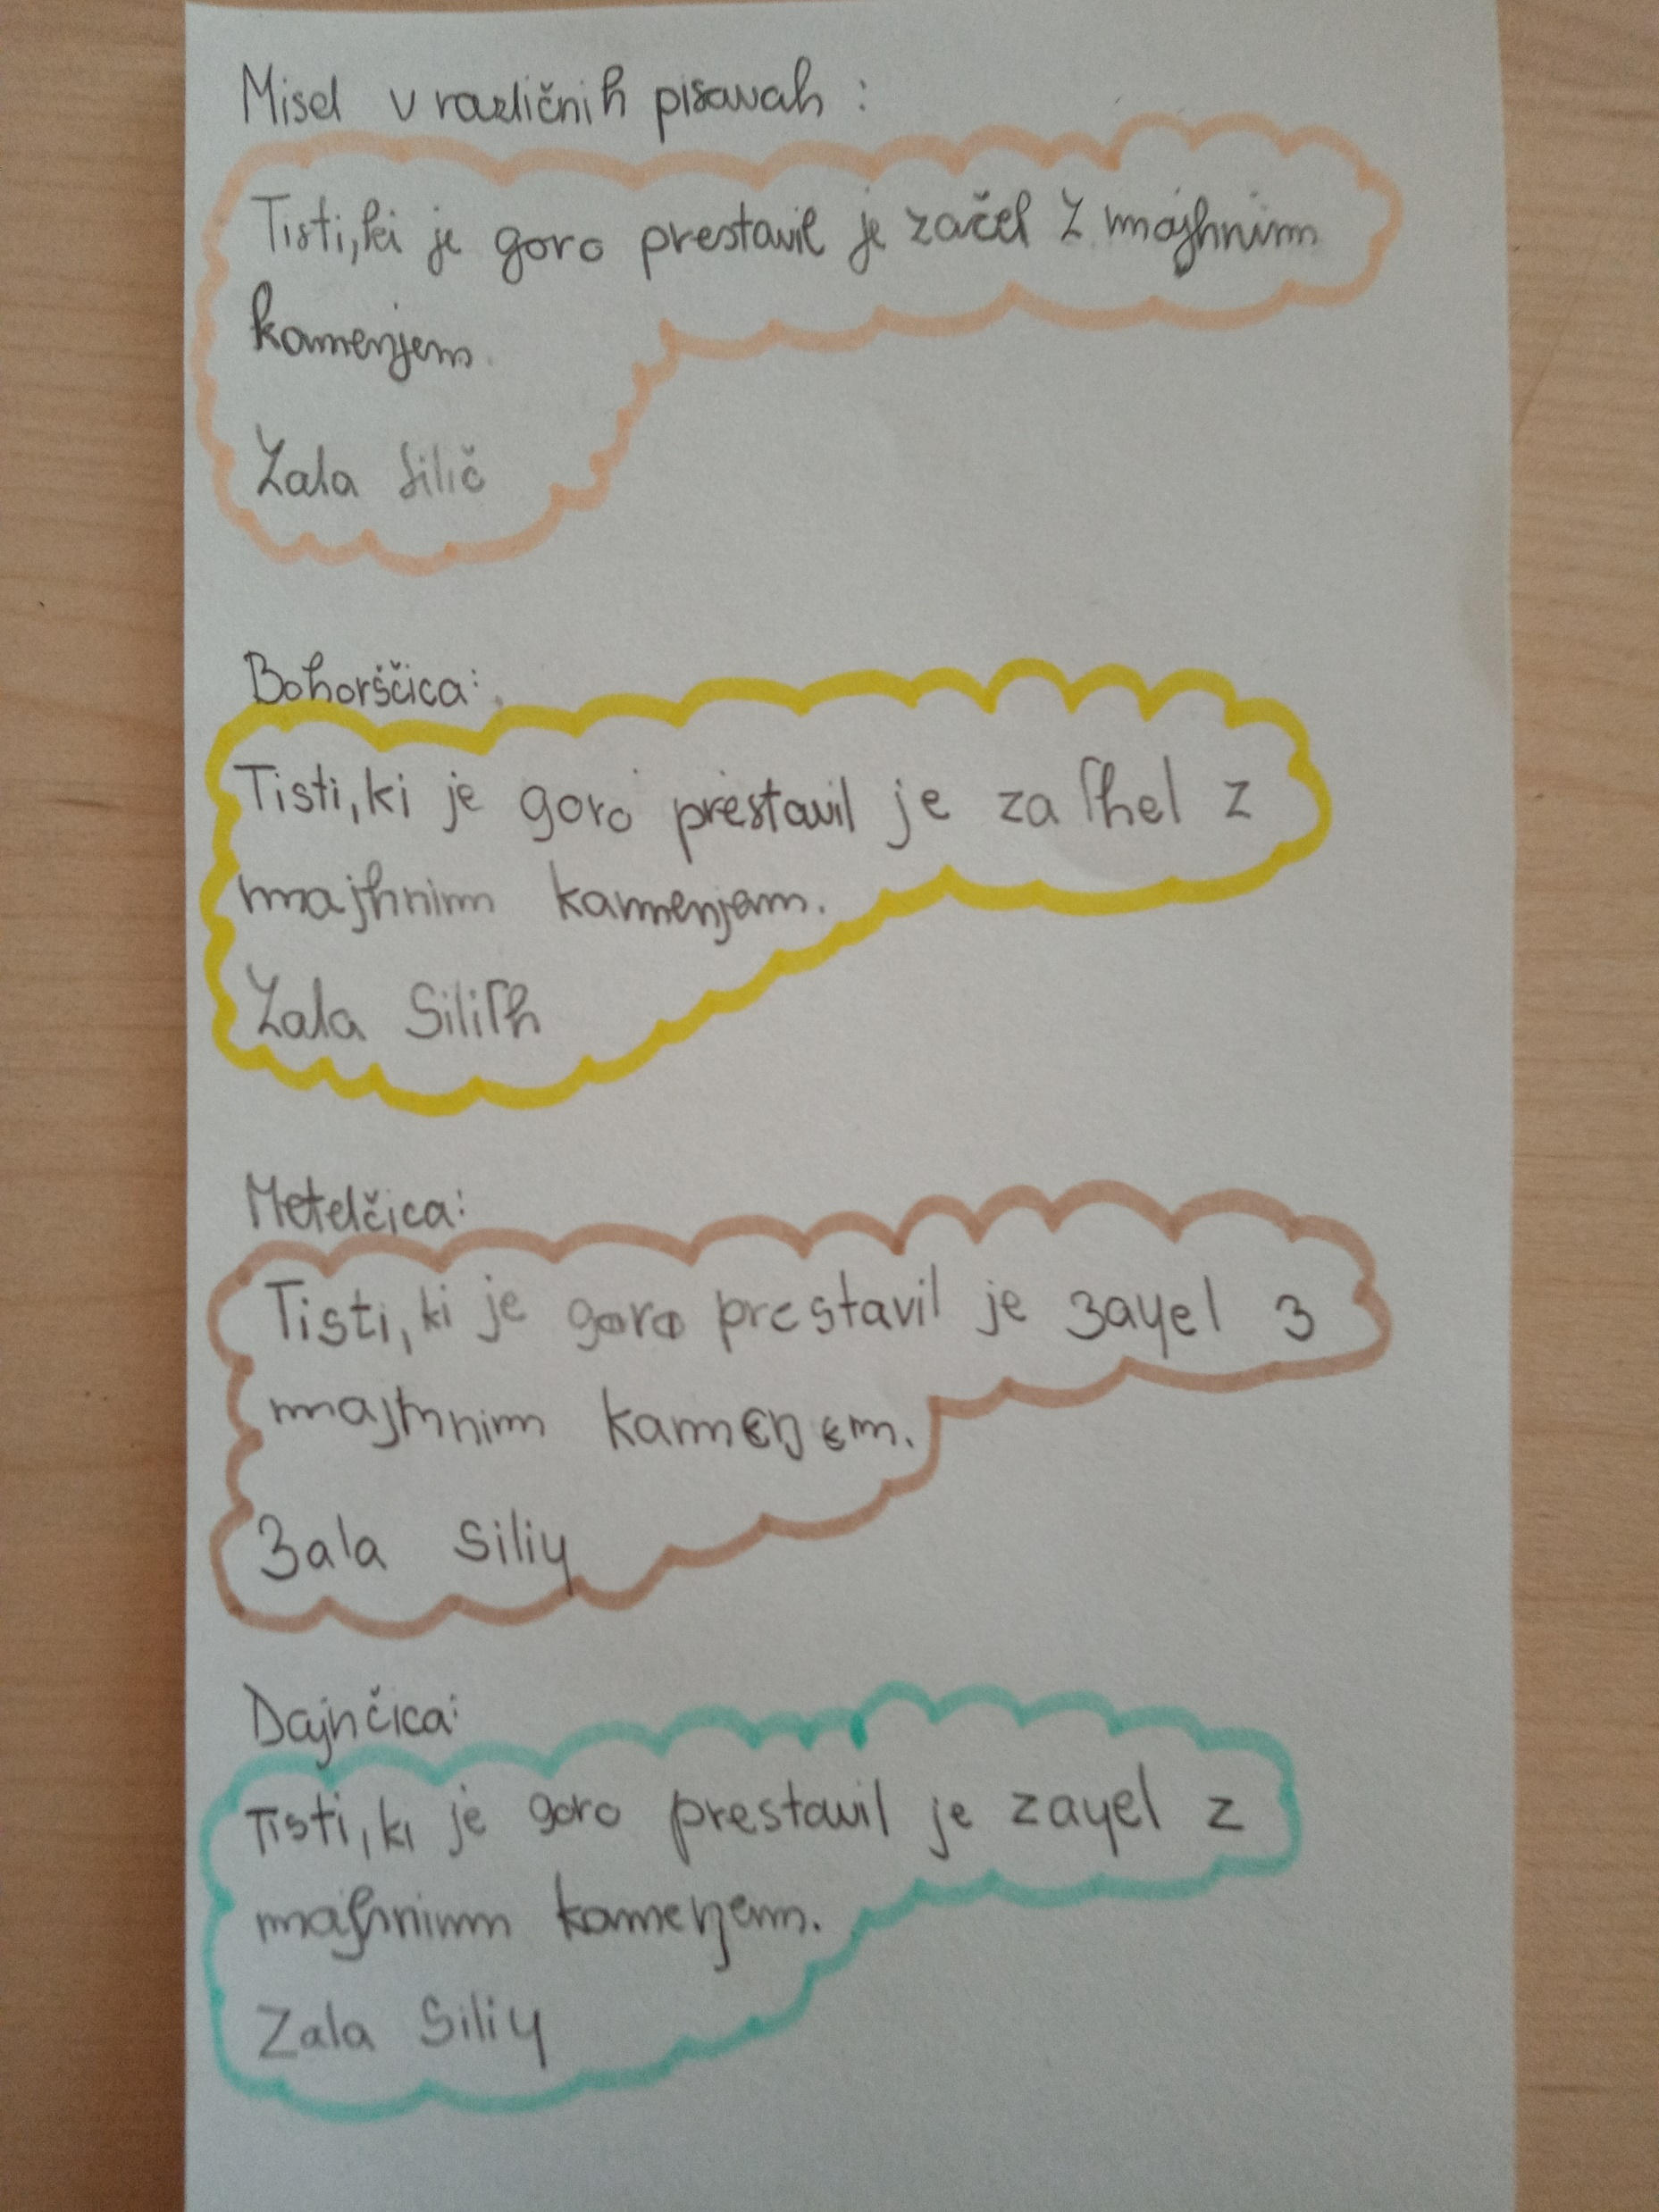 Misel v različnih pisavah :
Tisti, ki je goro prestavil je začel z majhnim
kamenjem.
Zala Silič
Bohorščica:
Tisti, ki je goro prestavil je zaſhel z
majhnim kamenjem.
Zala Siliſh
Metelčica:
Tisti, ki je goro prestavil je 3ayel 3
majhnim kamєŋєm.
3ala Siliy
Dajnčica:
Tisti, ki je goro prestavil je zayel z
majhnim kameŋem.
Zala Siliy